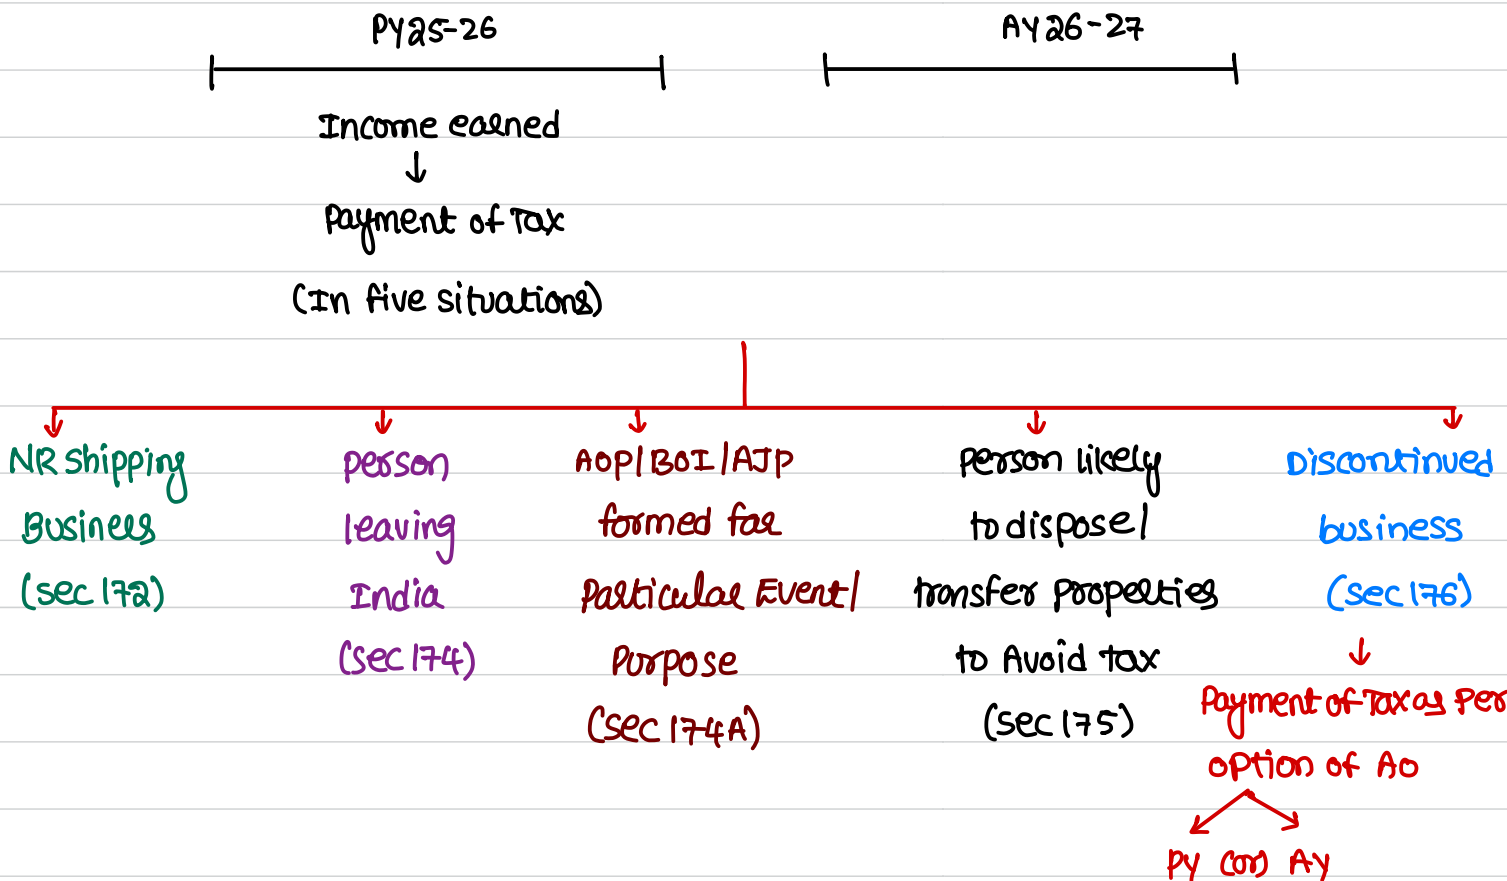 PY25-26
AY26-27
Income earned
Payment of Tax
(In five situations)
NR Shipping
Business
(sec 172)
person
leaving
India
(sec 174)
AOP/BOI/AJP
formed for
Particular Event/
Purpose
(sec 174A)
Person likely
to dispose/
transfer properties
to Avoid tax
(sec 175)
Discontinued
business
(sec 176)
Payment of Tax as Per
option of AO
PY (or) AY